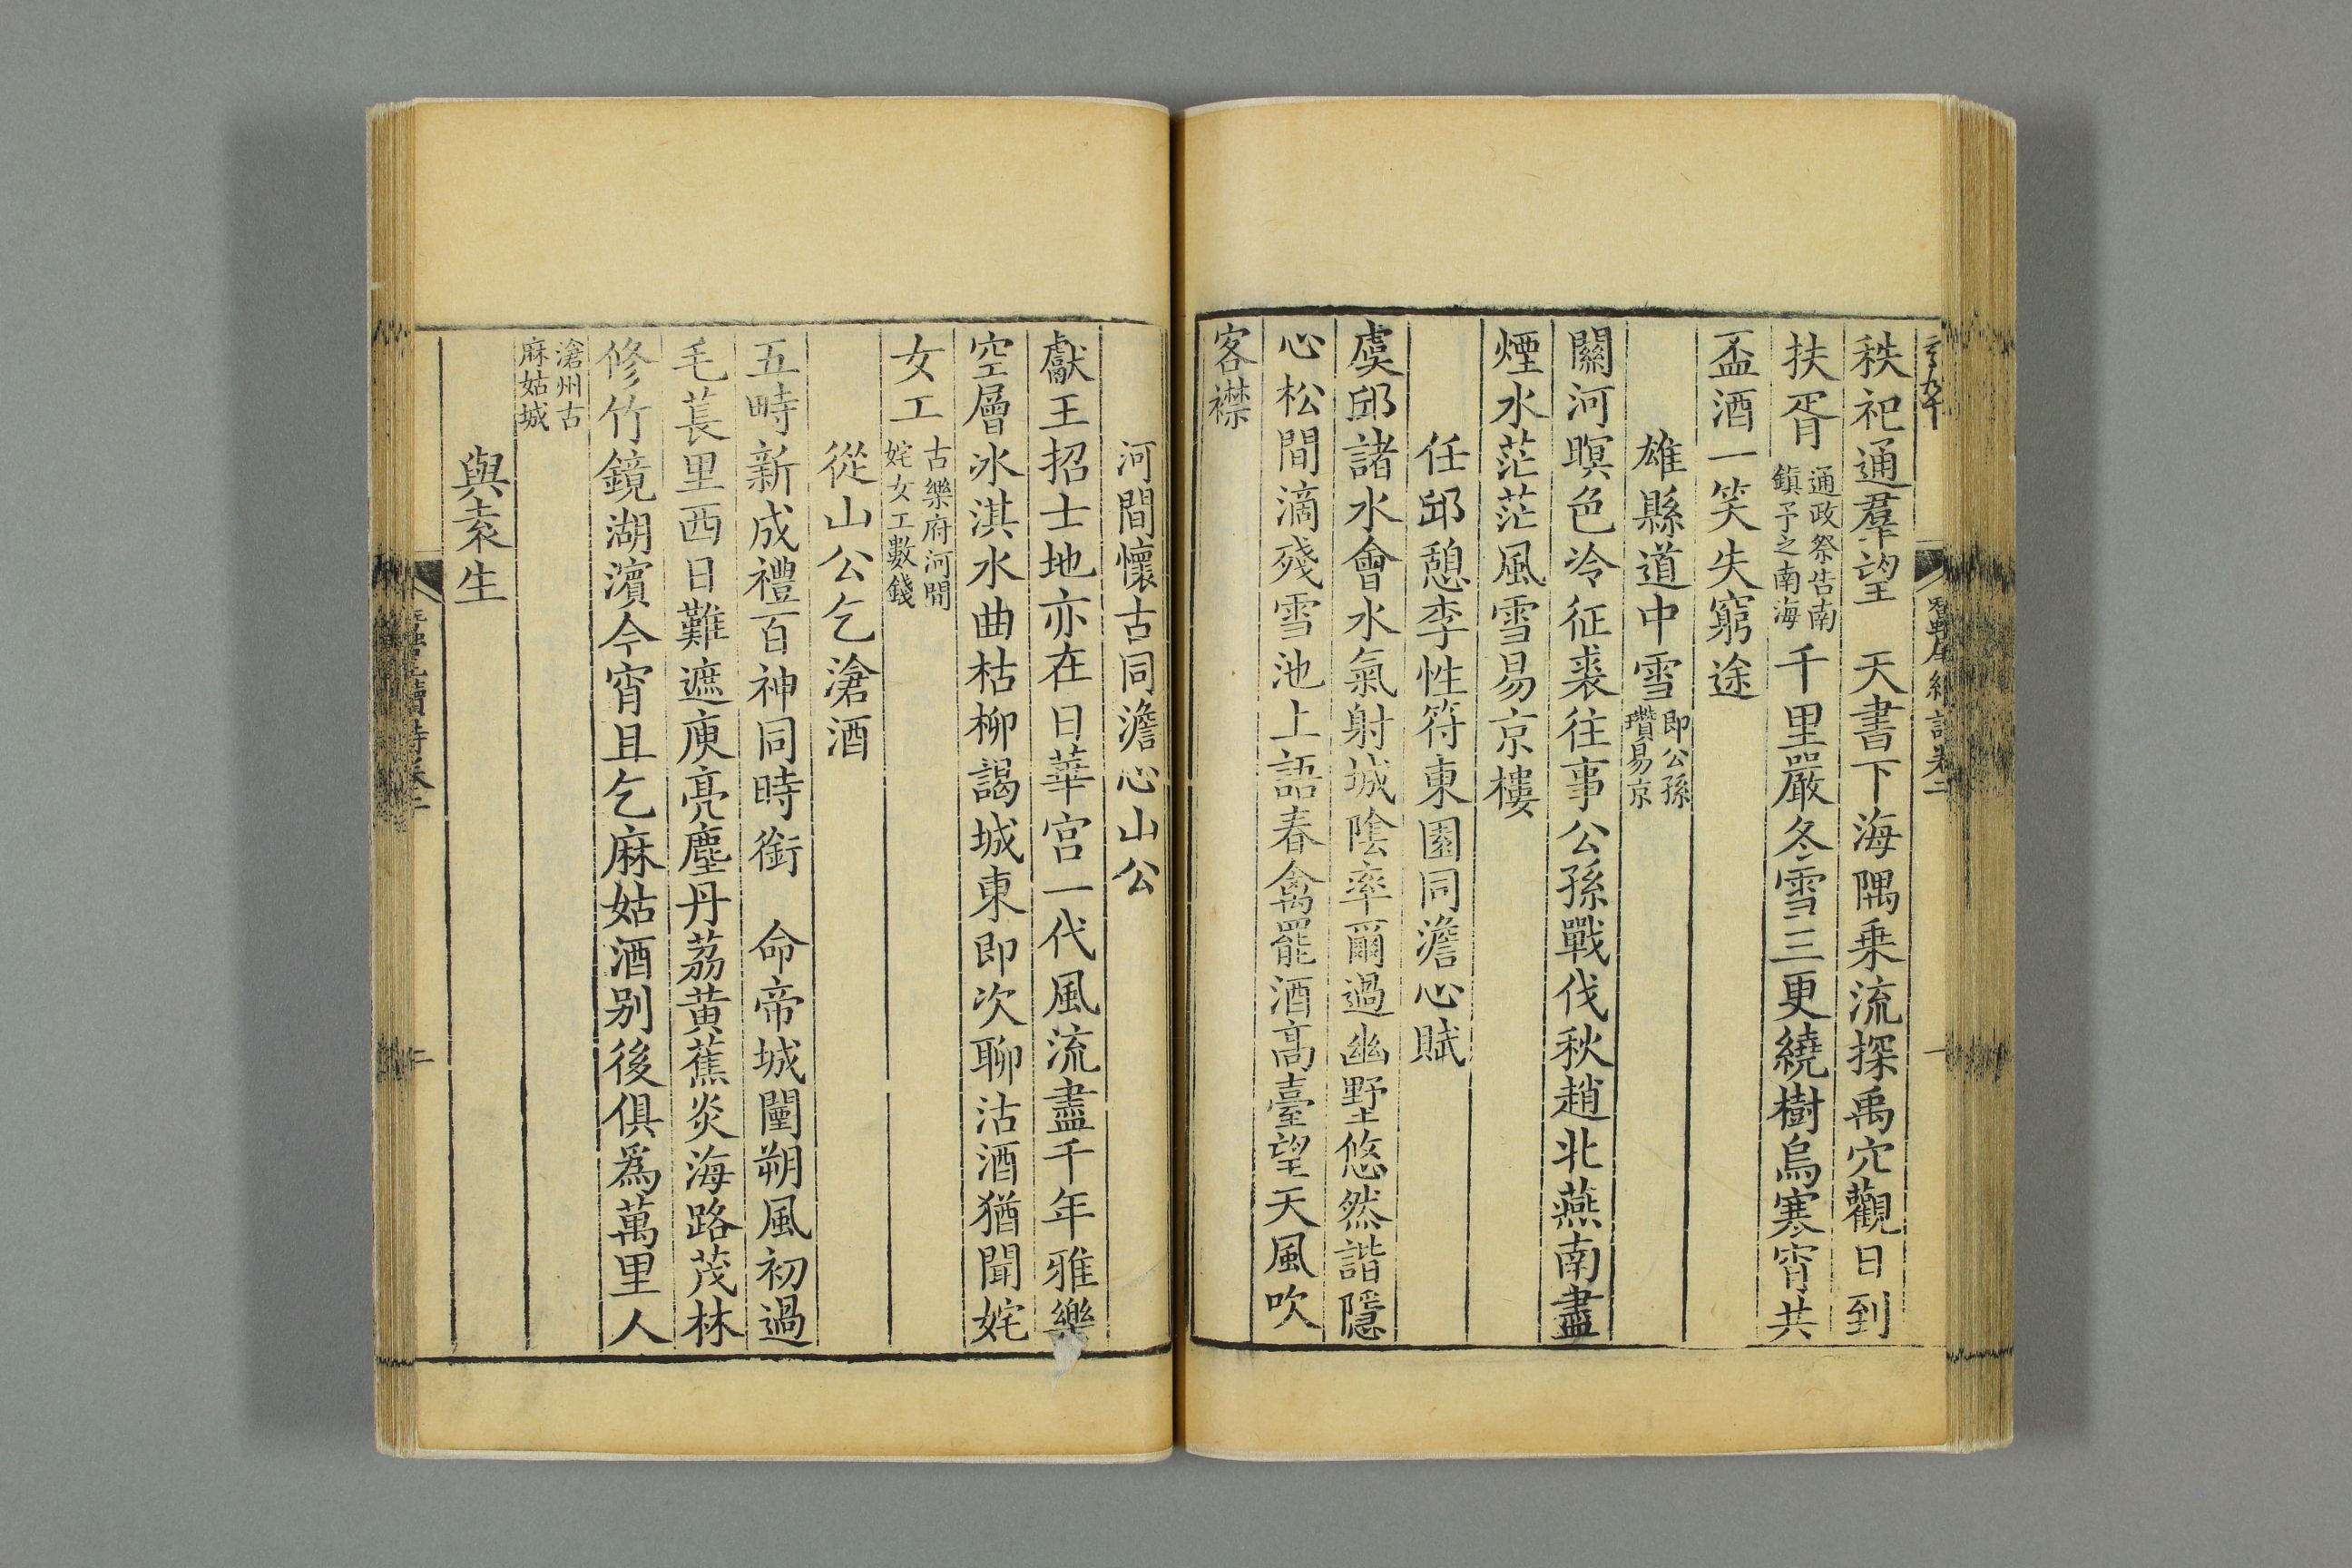 秩祀通羣望　天書下海隅乗流探禹穴觀日到
扶胥通政祭告南鎮予之南海千里嚴冬雪三更繞樹烏寒宵共
盃酒一笑失窮途
雄縣道中雪即公孫瓚易京
關河暝色冷征裘往事公孫戰伐秋趙北燕南盡
煙水茫茫風雪易京樓
任邱憩李性符東園同澹心賦
虞邱諸水會水氣射城陰率爾過幽野悠然諧隱
心松間滴殘雪池上語春禽罷酒高臺望天風吹
客襟
河間懷古同澹心山公
獻王招士地亦在日華宮一代風流盡千年雅樂
空層冰淇水曲枯柳謁城東即次聊沽酒猶聞姹
女工古樂府河間姹女工數錢
從山公乞滄酒
五畤新成禮百神同時銜　命帝城闉朔風初過
毛萇里西日難遮庾亮塵丹荔黄蕉炎海路茂林
修竹鏡湖濱今宵且乞麻姑酒别後俱爲萬里人
滄州古麻姑城
與袁生
二